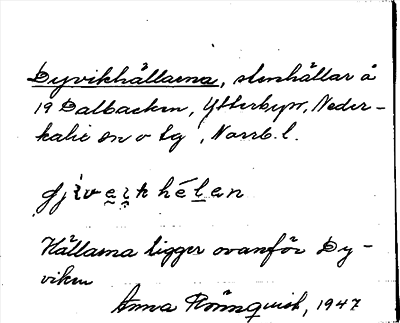 Dyvikhällarna, stenhällar å
19 Dalbacken, Ytterbyn, Neder-
kalix sn o tg, Norrb. l.
Hällarna ligger ovanför Dy-
viken
Anna Rönnquist, 1947